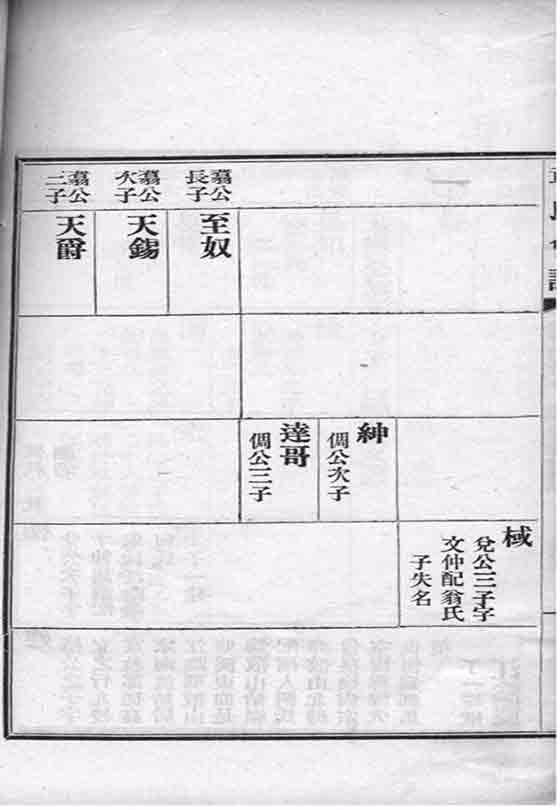 棫
兌公三子字
文仲配翁氏
子失名
紳
倜公次子
達哥
倜公三子
翥公
長子
至奴
翥公
次子
天錫
翥公
三子
天爵